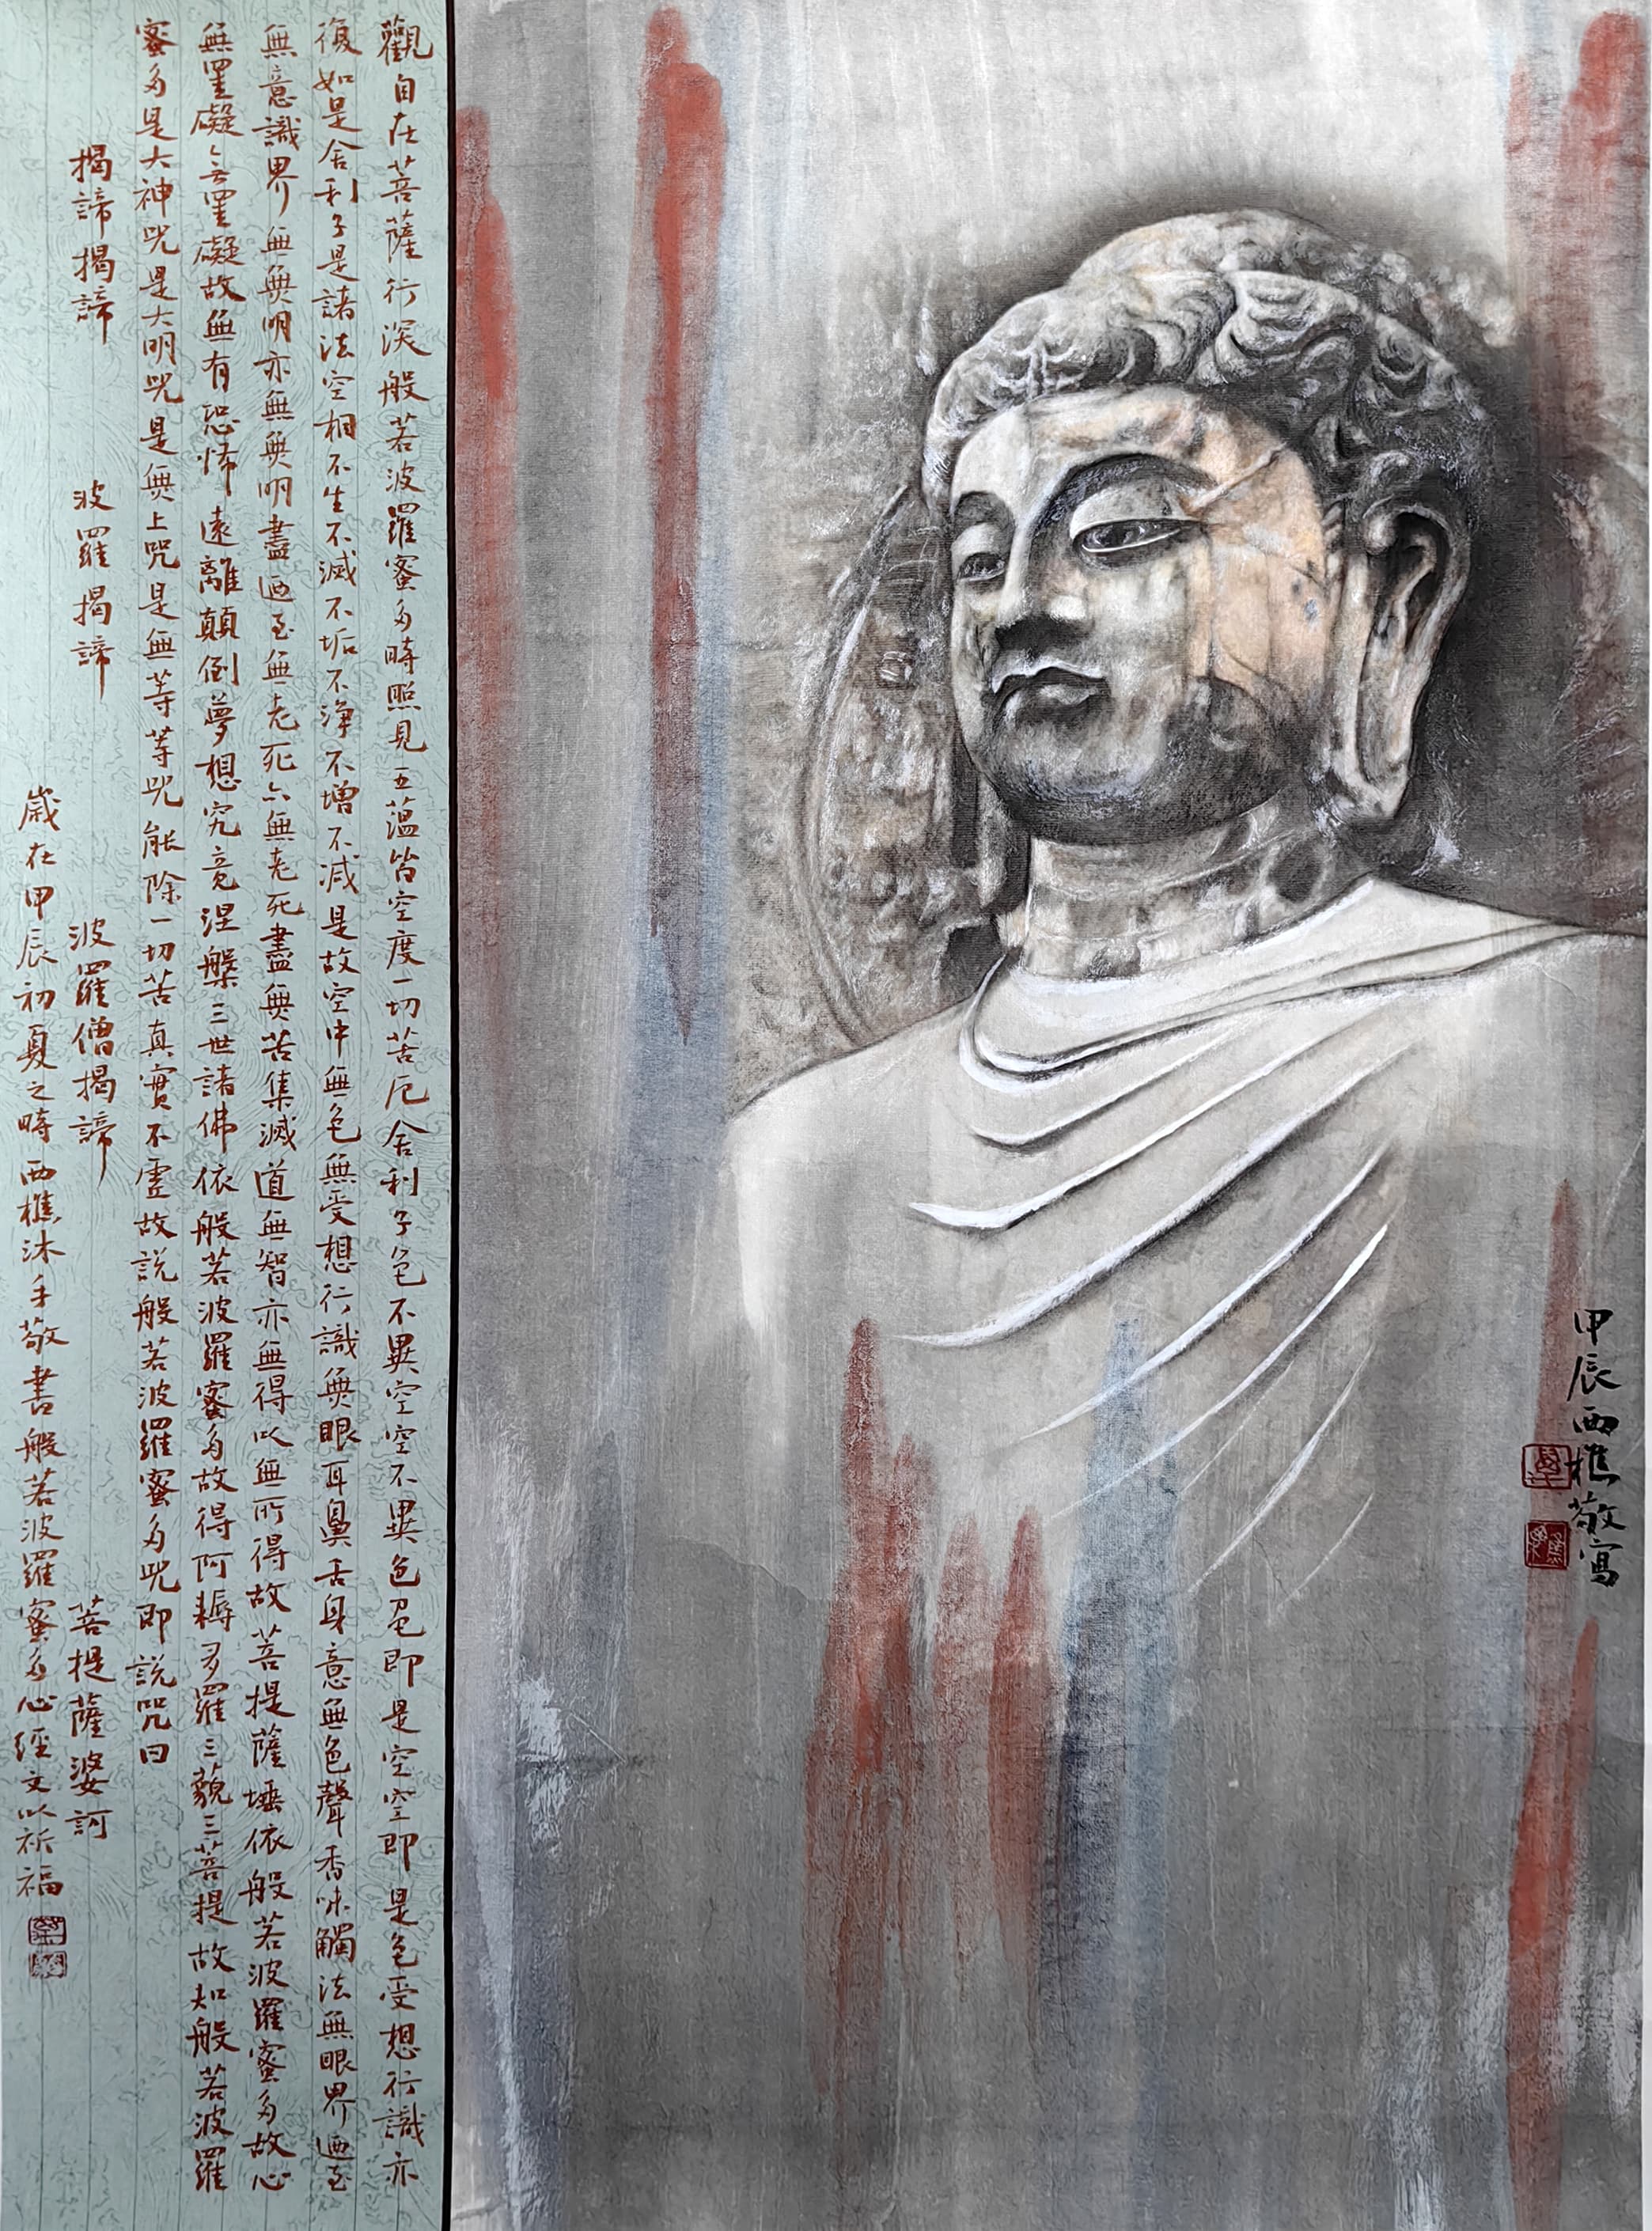 觀自在菩薩行深般若波羅蜜多時照見五蕰皆空度一切苦厄舍利子色不異空空不異色色即是空空即是色受想行識亦
復如是舍利子是諸法空相不生不滅不垢不淨不增不减是故空中無色無受想行識無眼耳鼻舌身意無色聲香味觸法無眼界迺至
無意識界無無明亦無無明盡迺至無老死亦無老死盡無苦集滅道無智亦無得以無所得故菩提薩埵依般若波羅蜜多故心
無罣礙無罣礙故無有恐怖遠離顛倒夢想究竟涅槃三世諸佛依般若波羅蜜多故得阿耨多羅三藐三菩提故知般若波羅
蜜多是大神咒是大明咒是無上咒是無等等咒能除一切苦真實不虛故説般若波羅蜜多咒即説咒曰
揭諦揭諦 波羅揭諦 波羅僧揭諦 菩提薩婆訶
歲在甲辰初夏之時西樵沐手敬書般若波羅蜜多心經文以祈福
甲辰西樵敬寫